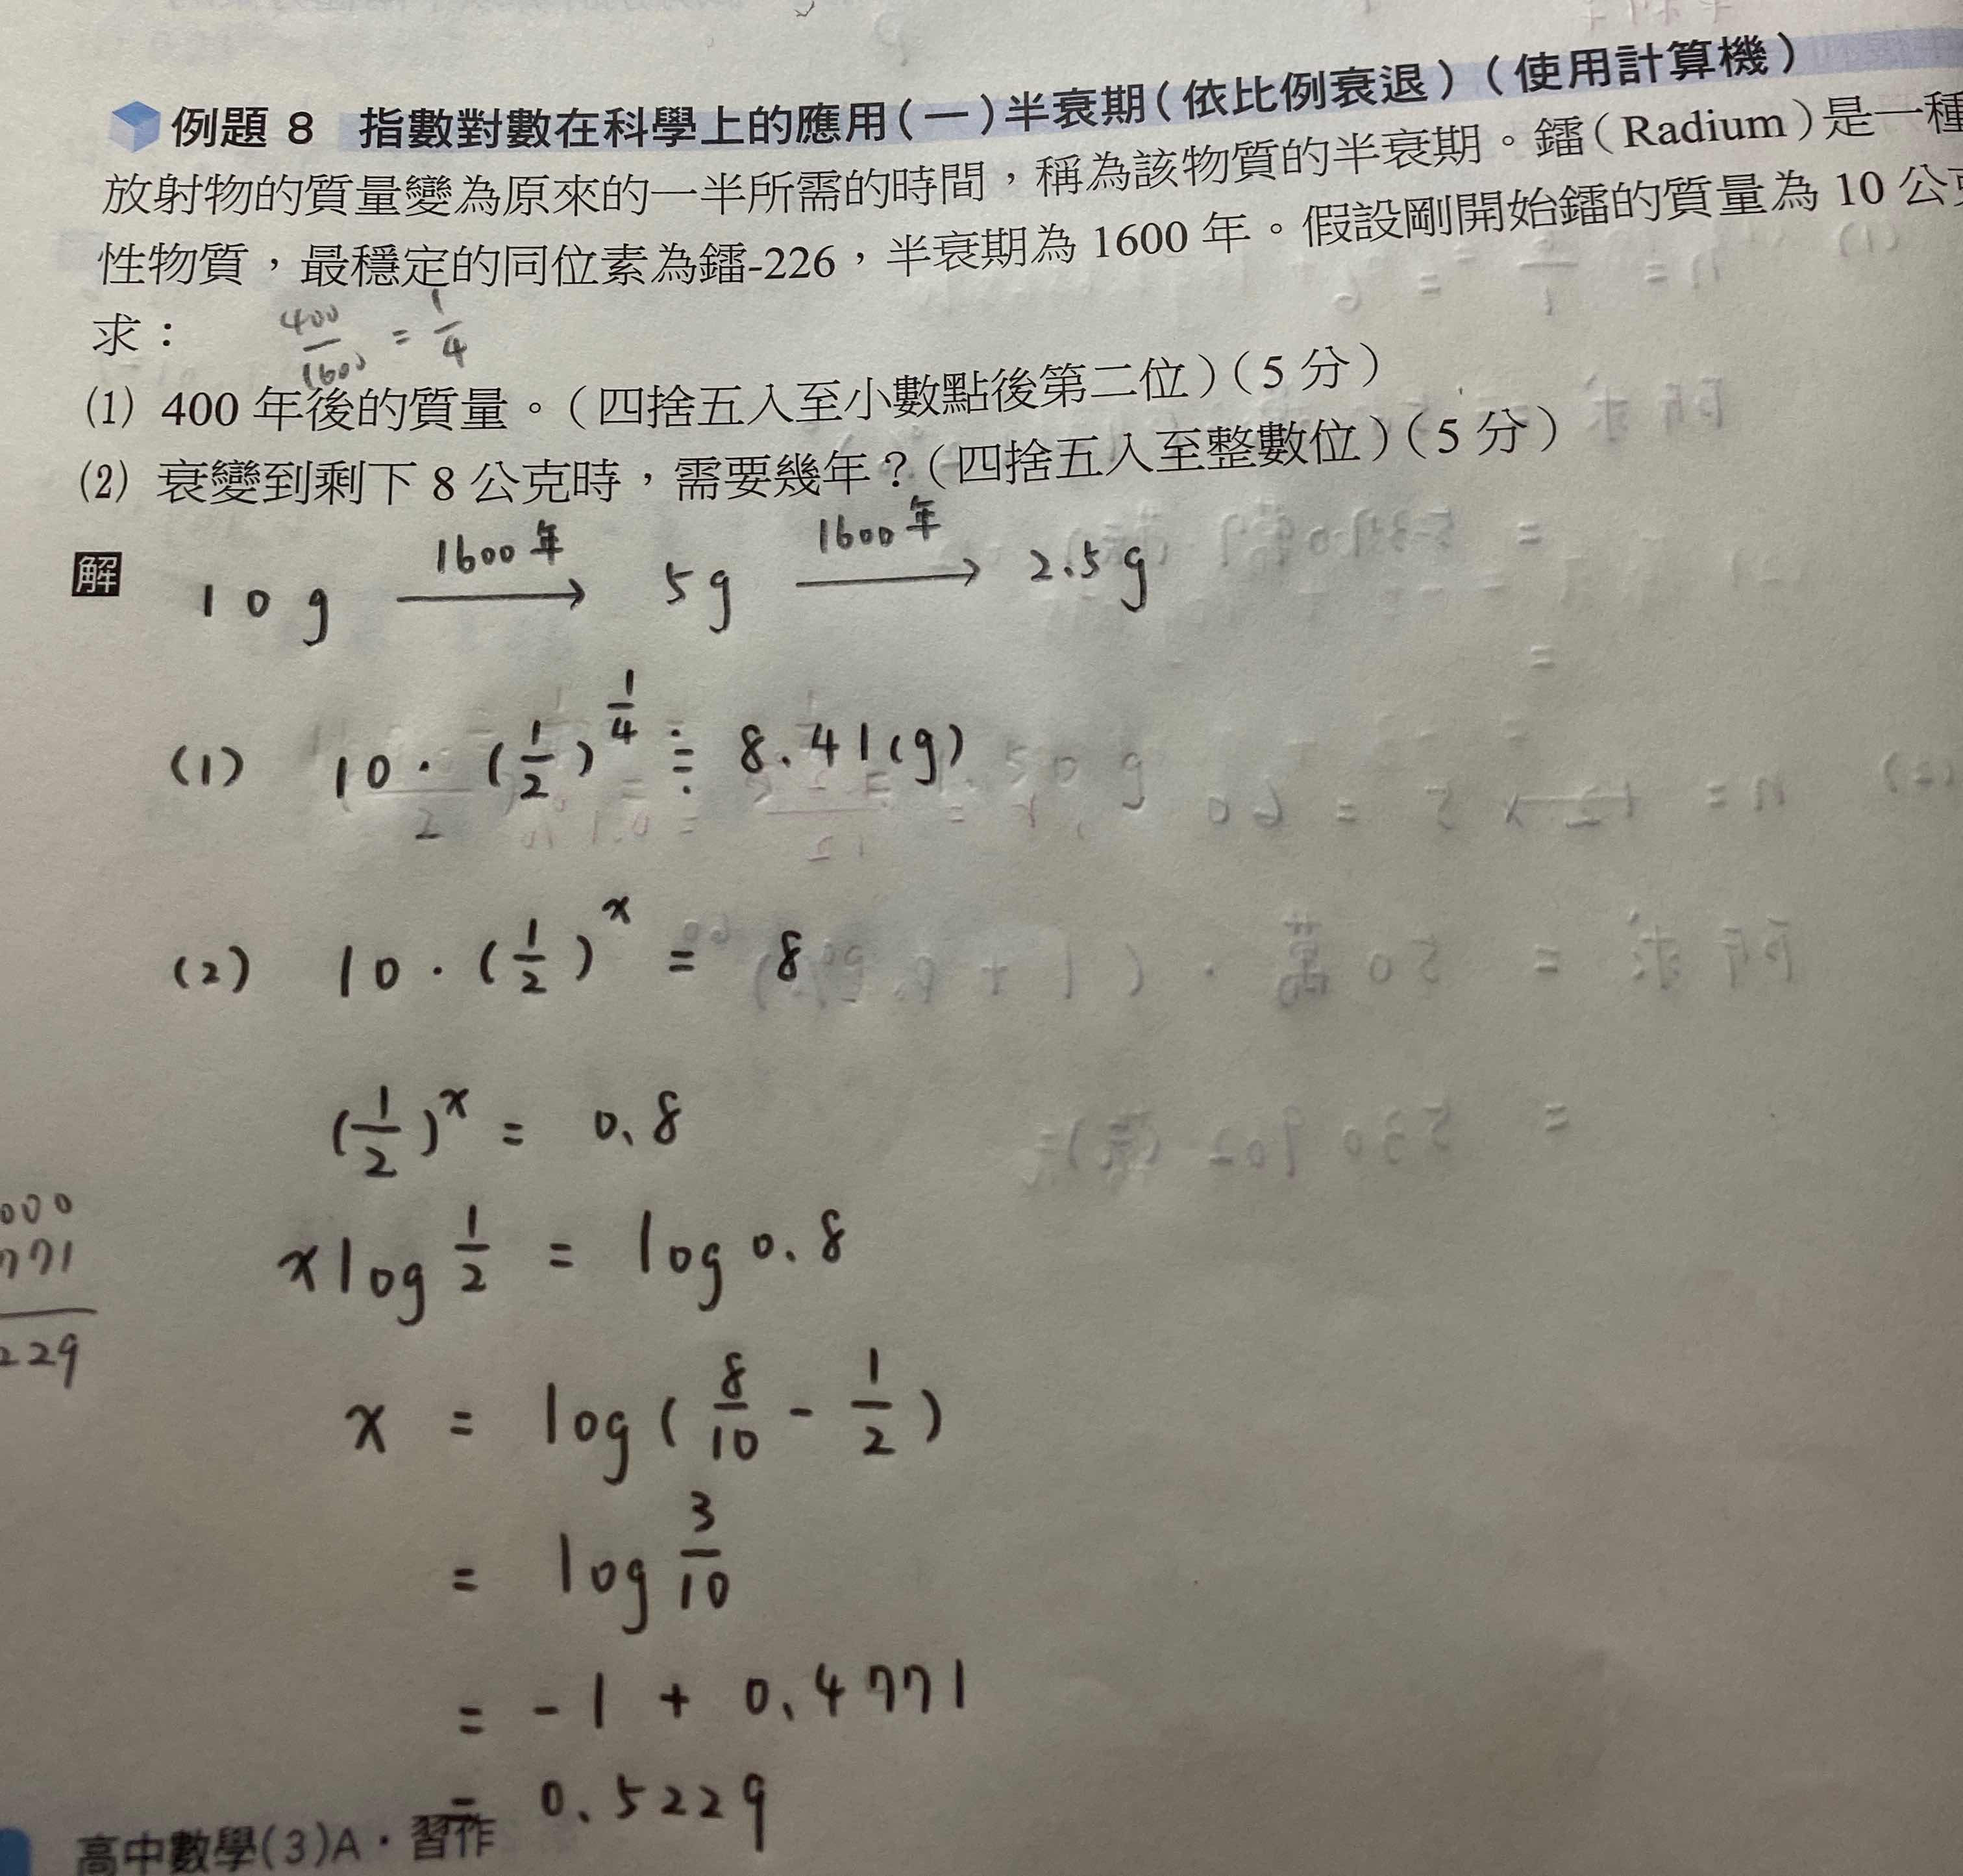 例題 8 指數對數在科學上的應用(一)半衰期(依比例衰退)(使用計算機)
放射物的質量變為原來的一半所需的時間，稱為該物質的半衰期。鐳(Radium)是一種
性物質，最穩定的同位素為鐳-226，半衰期為 1600 年。假設剛開始鐳的質量為 10 公
求：
400/1600 = 1/4
(1) 400 年後的質量。(四捨五入至小數點後第二位)(5 分)
(2) 衰變到剩下 8 公克時，需要幾年？(四捨五入至整數位)(5 分)
解 10g 1600年→ 5g 1600年→ 2.5g
(1) 10·(1/2)^(1/4) ≒ 8.41(g)
2
(2) 10·(1/2)^x = 8
(1/2)^x = 0.8
x log 1/2 = log 0.8
x = log(8/10 - 1/2)
= log 3/10
= -1 + 0.4771
= 0.5229
000
771
229
高中數學(3)A·習作